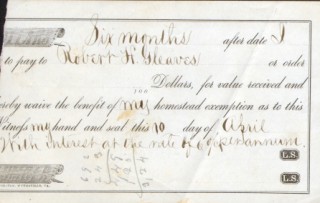 Six months after date I
to pay to Robert H. Gleaves or order
100
Dollars, for value received and
hereby waive the benefit of my homestead exemption as to this
Witness my hand and seal this 10 day of April
With interest at the rate of per annum.
L.S.
L.S.